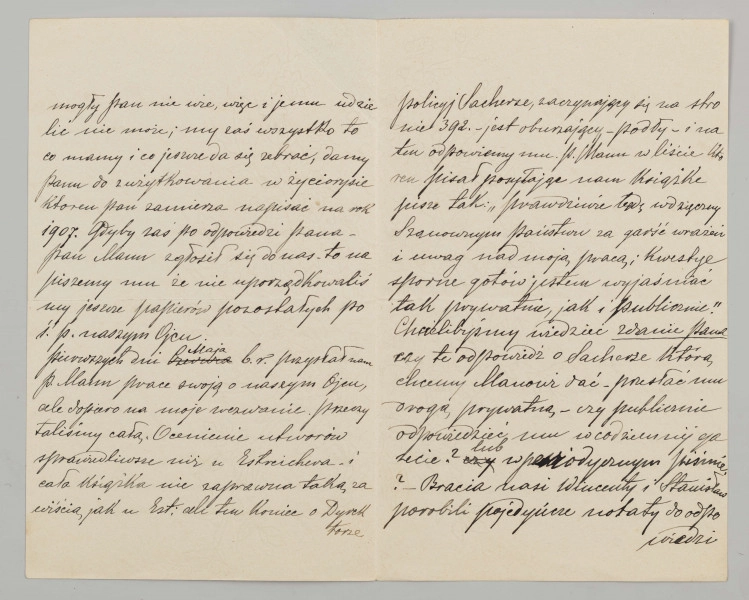 mogły pan nie wie, więc i jemu udzie
lić nie może; my zaś wszystko to
co mamy i co jeszcze da się zebrać, damy
panu do zużytkowania w życiorysie
którem pan zamierza napisać na rok
1907. Gdyby zaś po odpowiedzi pana –
pan Mann zgłosił się do nas – to na
piszemy mu że nie uporządkowaliś
my jeszcze papierów pozostałych po
ś. p. naszym Ojcu.
Pierwszych dni Maja b. r. przysłał nam
p. Mann pracę swoją o naszym Ojcu,
ale dopiero na moje wezwanie. Przeczy
taliśmy całą. Ocenienie utworów
sprawiedliwsze niż u Estreichera – i
cała książka nie zaprawna taką za
wiścią, jak u Est: ale ten koniec o Dyrek
torze
policyj Sacherze, zaczynający się na stro
nie 392. – jest oburzający – podły – i na
ten odpowiemy mu. p. Mann w liście któ
ren pisał posyłając nam książkę
pisze tak: „prawdziwie będę wdzięczny
Szanownym Państwu za garść wrażeń
i uwag nad moją pracą; Kwestye
sporne gotów jestem wyjaśniać
tak prywatnie, jak i publicznie."
Chcielibyśmy wiedzieć zdanie pana
czy tę odpowiedź o Sacherze którą
chcemy Manowi dać – przesłać mu
drogą prywatną, – czy publicznie
odpowiedzieć mu w codziennej ga
zecie? lub w periodycznym piśmie
? – Bracia nasi Wincenty i Stanisław
porobili pojedyńcze notaty do odpo
wiedzi